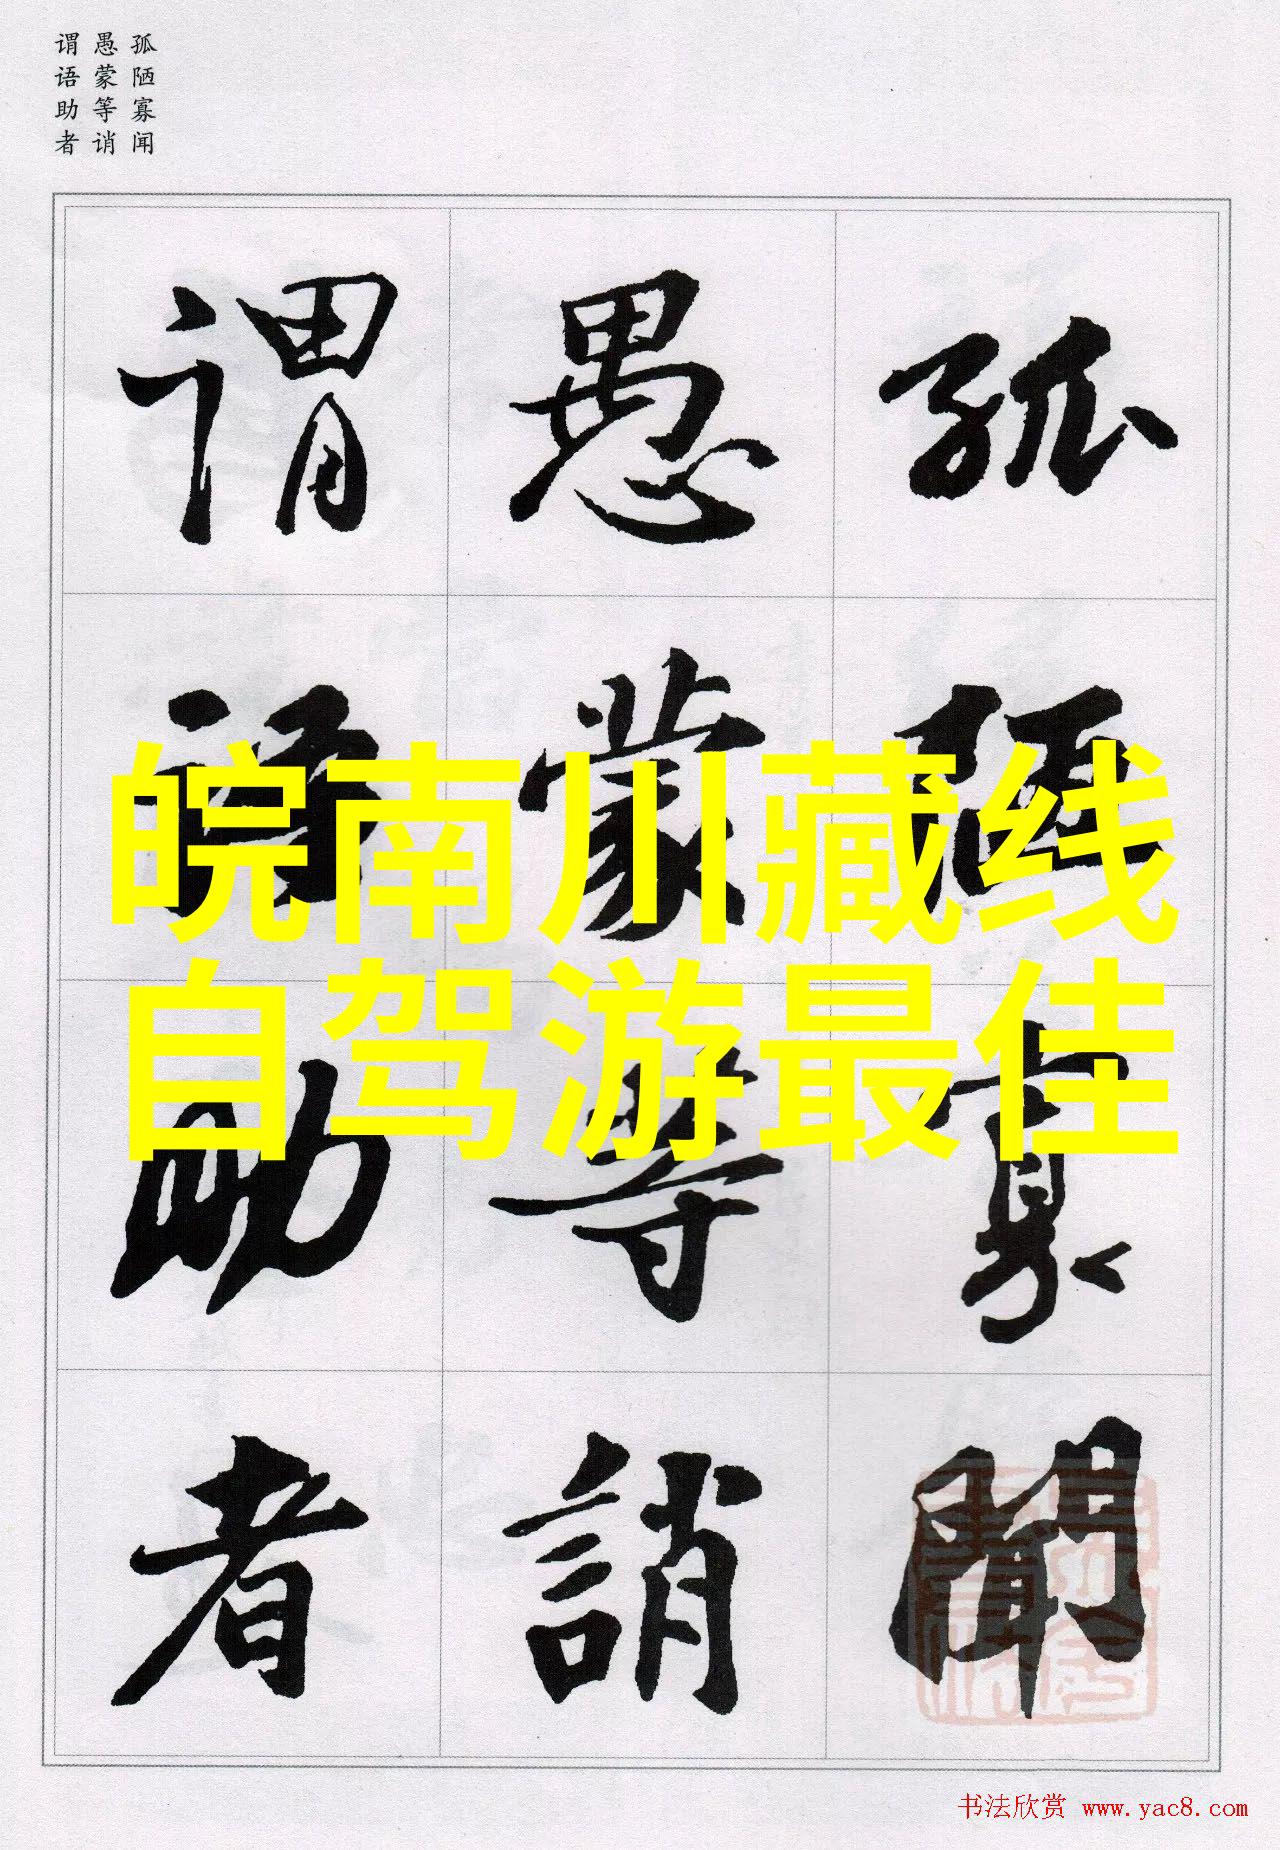 孤陋寡闻
愚蒙等诮
谓语助者
孤陋寡聞
愚蒙等誚
谓语助者
皖南川藏线
自驾游最佳
书法欣赏 www.yac8.com